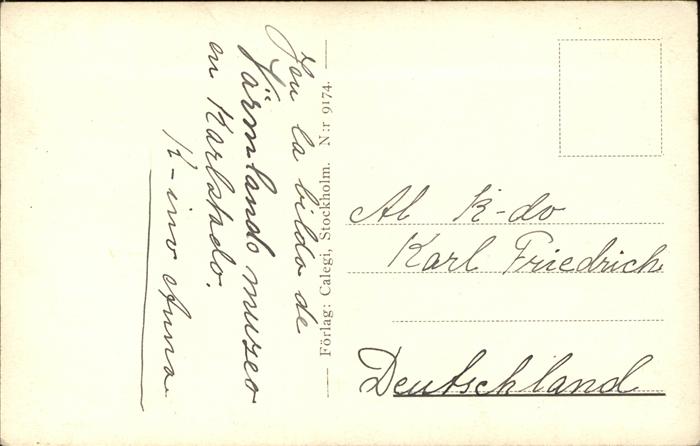 Jen la bildo de
Värmlands muzeo
en Karlstado.
K-ino Anna
Förlag: Calegi, Stockholm. N:r 9174.
Al K-do
Karl Friedrich
Deutschland